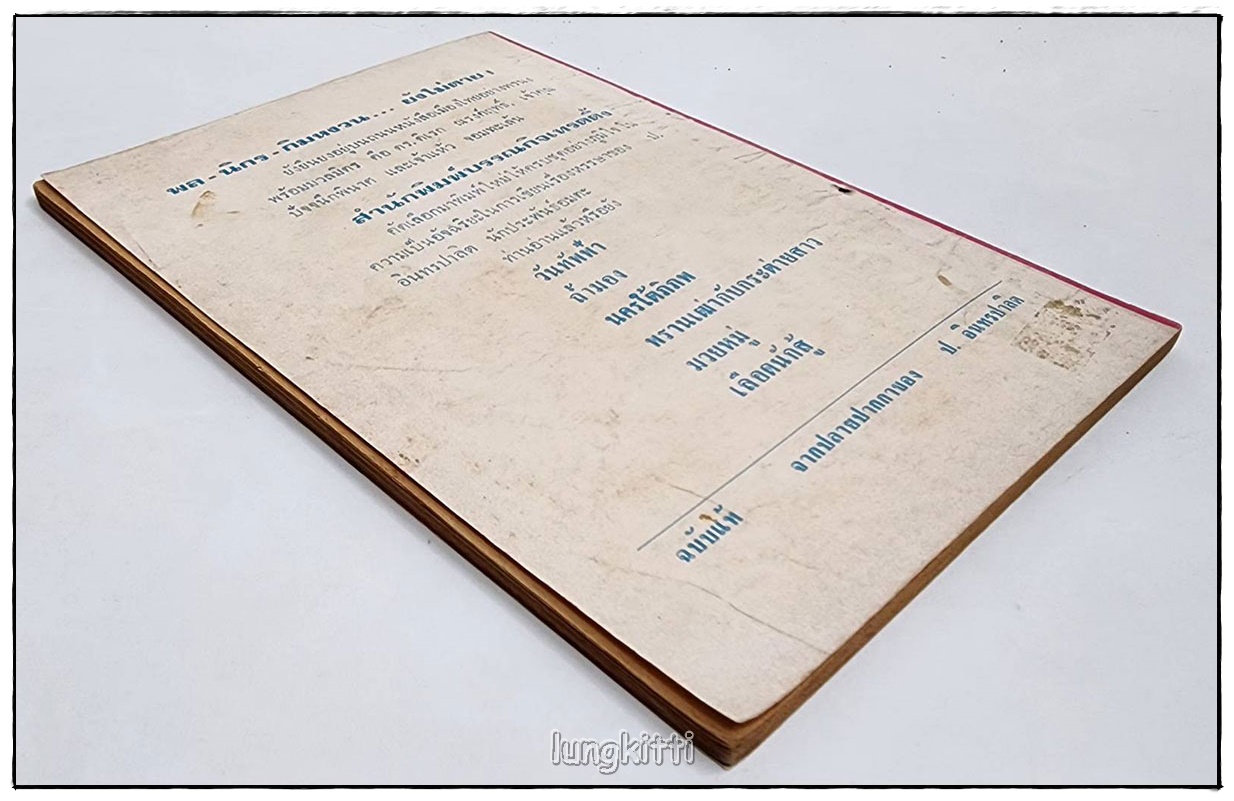 พล - นิกร - กิมหงวน... ยังไม่ตาย !
ยังยืนยงอยู่บนถนนหนังสือเมืองไทยอย่างทรนง
พร้อมมวลมิตร คือ ดร.ดิเรก ณรงค์ฤทธิ์, เจ้าคุณ
ปัจจนึกพินาศ และเจ้าแห้ว จอมทะเล้น
สำนักพิมพ์บรรณกิจเทรดดิ้ง
คัดเลือกมาพิมพ์ใหม่ให้ครบชุดอย่างภูมิใจใน
ความเป็นอัจฉริยะในการเขียนเรื่องหรรษาของ ป.
อินทรปาลิต นักประพันธ์อมตะ
ท่านอ่านแล้วหรือยัง
วันทัพฟ้า
จ้ามอง
นครใต้พิภพ
พรานเฒ่ากับกระต่ายสาว
มวยหมู่
เลือดนักสู้
จากปลายปากกาของ ป. อินทรปาลิต
ฉบับแท้
lungkitti